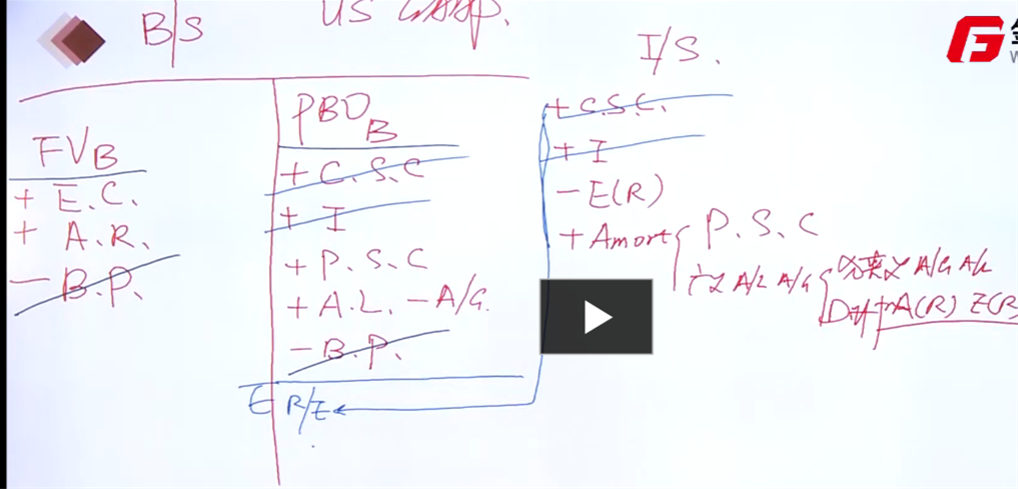 B/S US GAAP.
I/S.
FVB
+ E.C.
+ A.R.
- B.P.
PBOB
+ C.S.C
+ I
+ P.S.C
+ A.L. - A/G.
- B.P.
E R/E
+ C.S.C.
+ I
- E(R)
+ Amort { P.S.C
广义 A/L A/G { A/G A/L
Diff A(R) E(R)